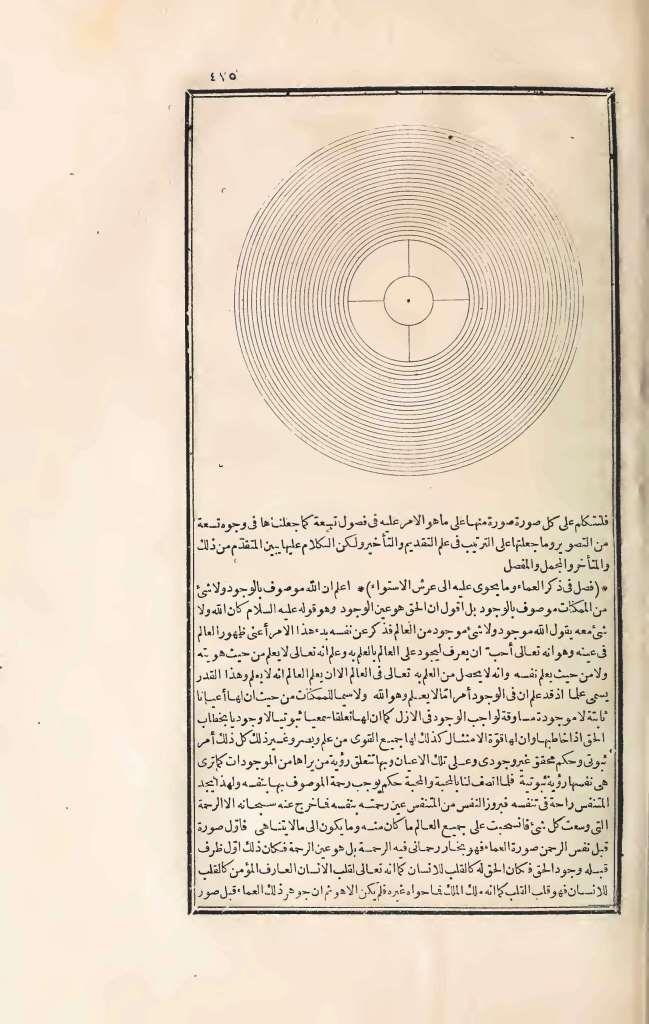 ٤١٥
فلنتكلم على كل صورة صورة منها على ماهو الامر عليه فى فصول تسعة كما جعلناها فى وجوه تسعة
من التصوير وما جعلتها على الترتيب فى علم التقديم والتأخير ولكن الكلام عليها يبين المتقدّم من ذلك
والمتأخر والمجمل والمفصل
* (فصل فى ذكر العماء وما يحوى عليه الى عرش الاستواء) * اعلم ان الله موصوف بالوجود ولا شئ
من الممكنات موصوف بالوجود بل اقول ان الحق هو عين الوجود وهو قوله عليه السلام كان الله ولا
شئ معه يقول الله موجود ولا شئ موجود من العالم فذكر عن نفسه بدء هذا الامر أعنى ظهور العالم
فى عينه وهو انه تعالى أحب ان يعرف ليجود على العالم بالعلم به وعلم انه تعالى لا يعلم من حيث هويته
ولا من حيث يعلم نفسه وانه لا يحصل من العلم به تعالى فى العالم الا ان يعلم العالم انه لا يعلم وهذا القدر
يسمى علما اذ قد علم ان فى الوجود أمرا مّا لا يعلم وهو الله ولا سيما للممكنات من حيث ان لها أعيانا
ثابتة لا موجودة مساوقة لواجب الوجود فى الازل كما ان لها تعلقا سمعيا ثبوتيا لا وجوديا بخطاب
الحق اذا خاطبها وان لها قوّة الامتثال كذلك لها جميع القوى من علم وبصر وغير ذلك كل ذلك أمر
ثبوتى وحكم محقق غير وجودى وعلى تلك الاعيان وبها تتعلق رؤية من يراها من الموجودات كما ترى
هى نفسها رؤية ثبوتية فلما اتصف لنا بالمحبة والمحبة حكم يوجب رحمة الموصوف بها بنفسه ولهذا يجد
المتنفس راحة فى تنفسه فبروز النفس من المتنفس عين رحمته بنفسه فما خرج عنه سبحانه الا الرحمة
التى وسعت كل شئ فانسحبت على جميع العالم ما كان منه وما يكون الى ما لا يتناهى فأوّل صورة
قبل نفس الرحمن صورة العماء فهو بخار رحمانى فيه الرحمة بل هو عين الرحمة فكان ذلك اوّل ظرف
قبله وجود الحق فكان الحق له كالقلب للانسان كما انه تعالى لقلب الانسان العارف المؤمن كالقلب
للانسان فهو قلب القلب كما انه ملك الملك فما حواه غيره فلم يكن الا هو ثم ان جوهر ذلك العماء قبل صور